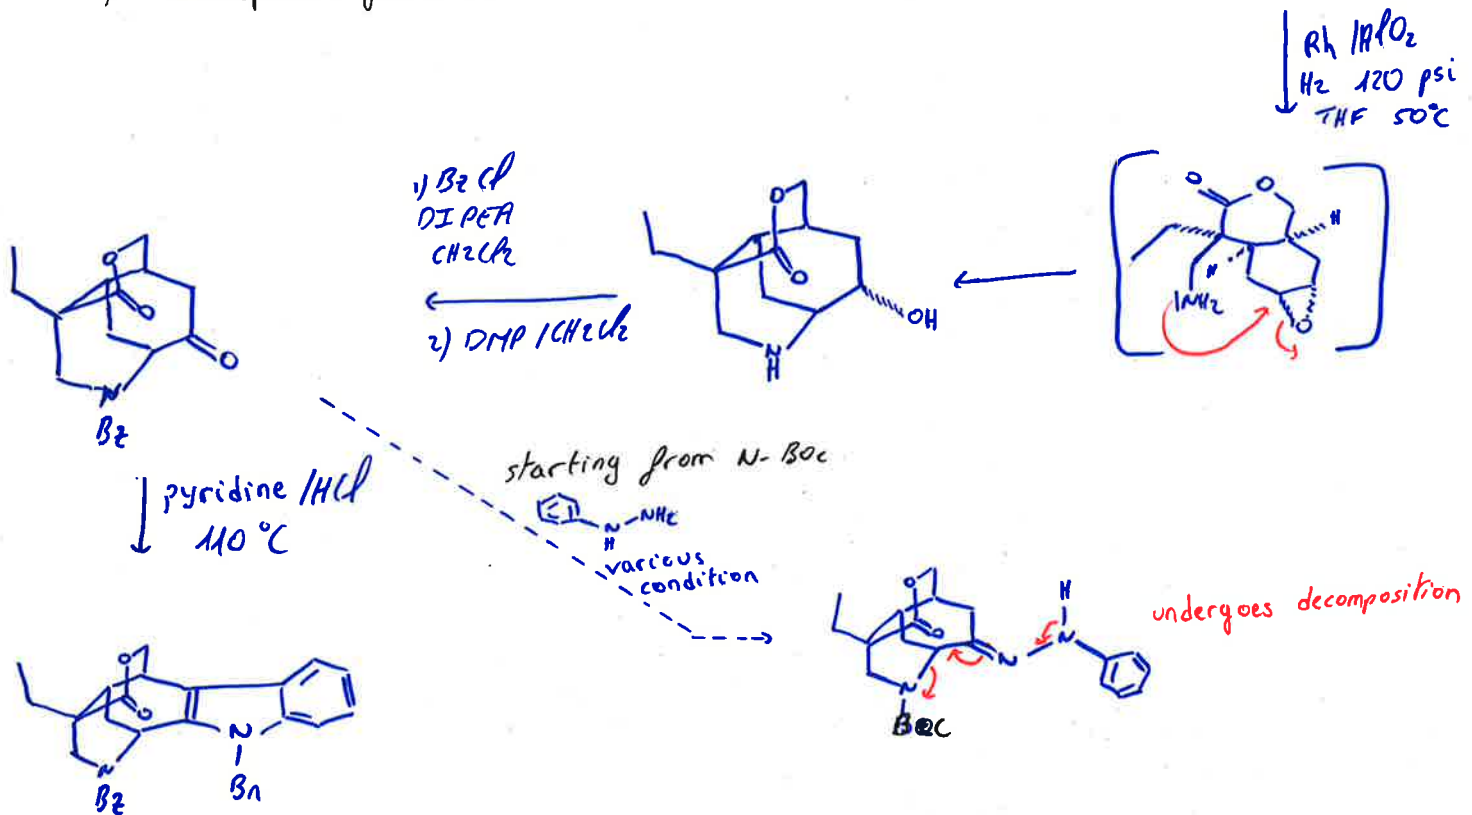 Rh /AlO2
H2 120 psi
THF 50°C
1) BzCl
DIPEA
CH2Cl2
2) DMP /CH2Cl2
O
O
O
N
Bz
O
O
OH
N
H
O
O
H
H
NH2
O
pyridine /HCl
110 °C
starting from N-Boc
N
H
NH2
various
condition
O
O
N
H
N
N
Boc
undergoes decomposition
O
O
N
Bz
N
Bn